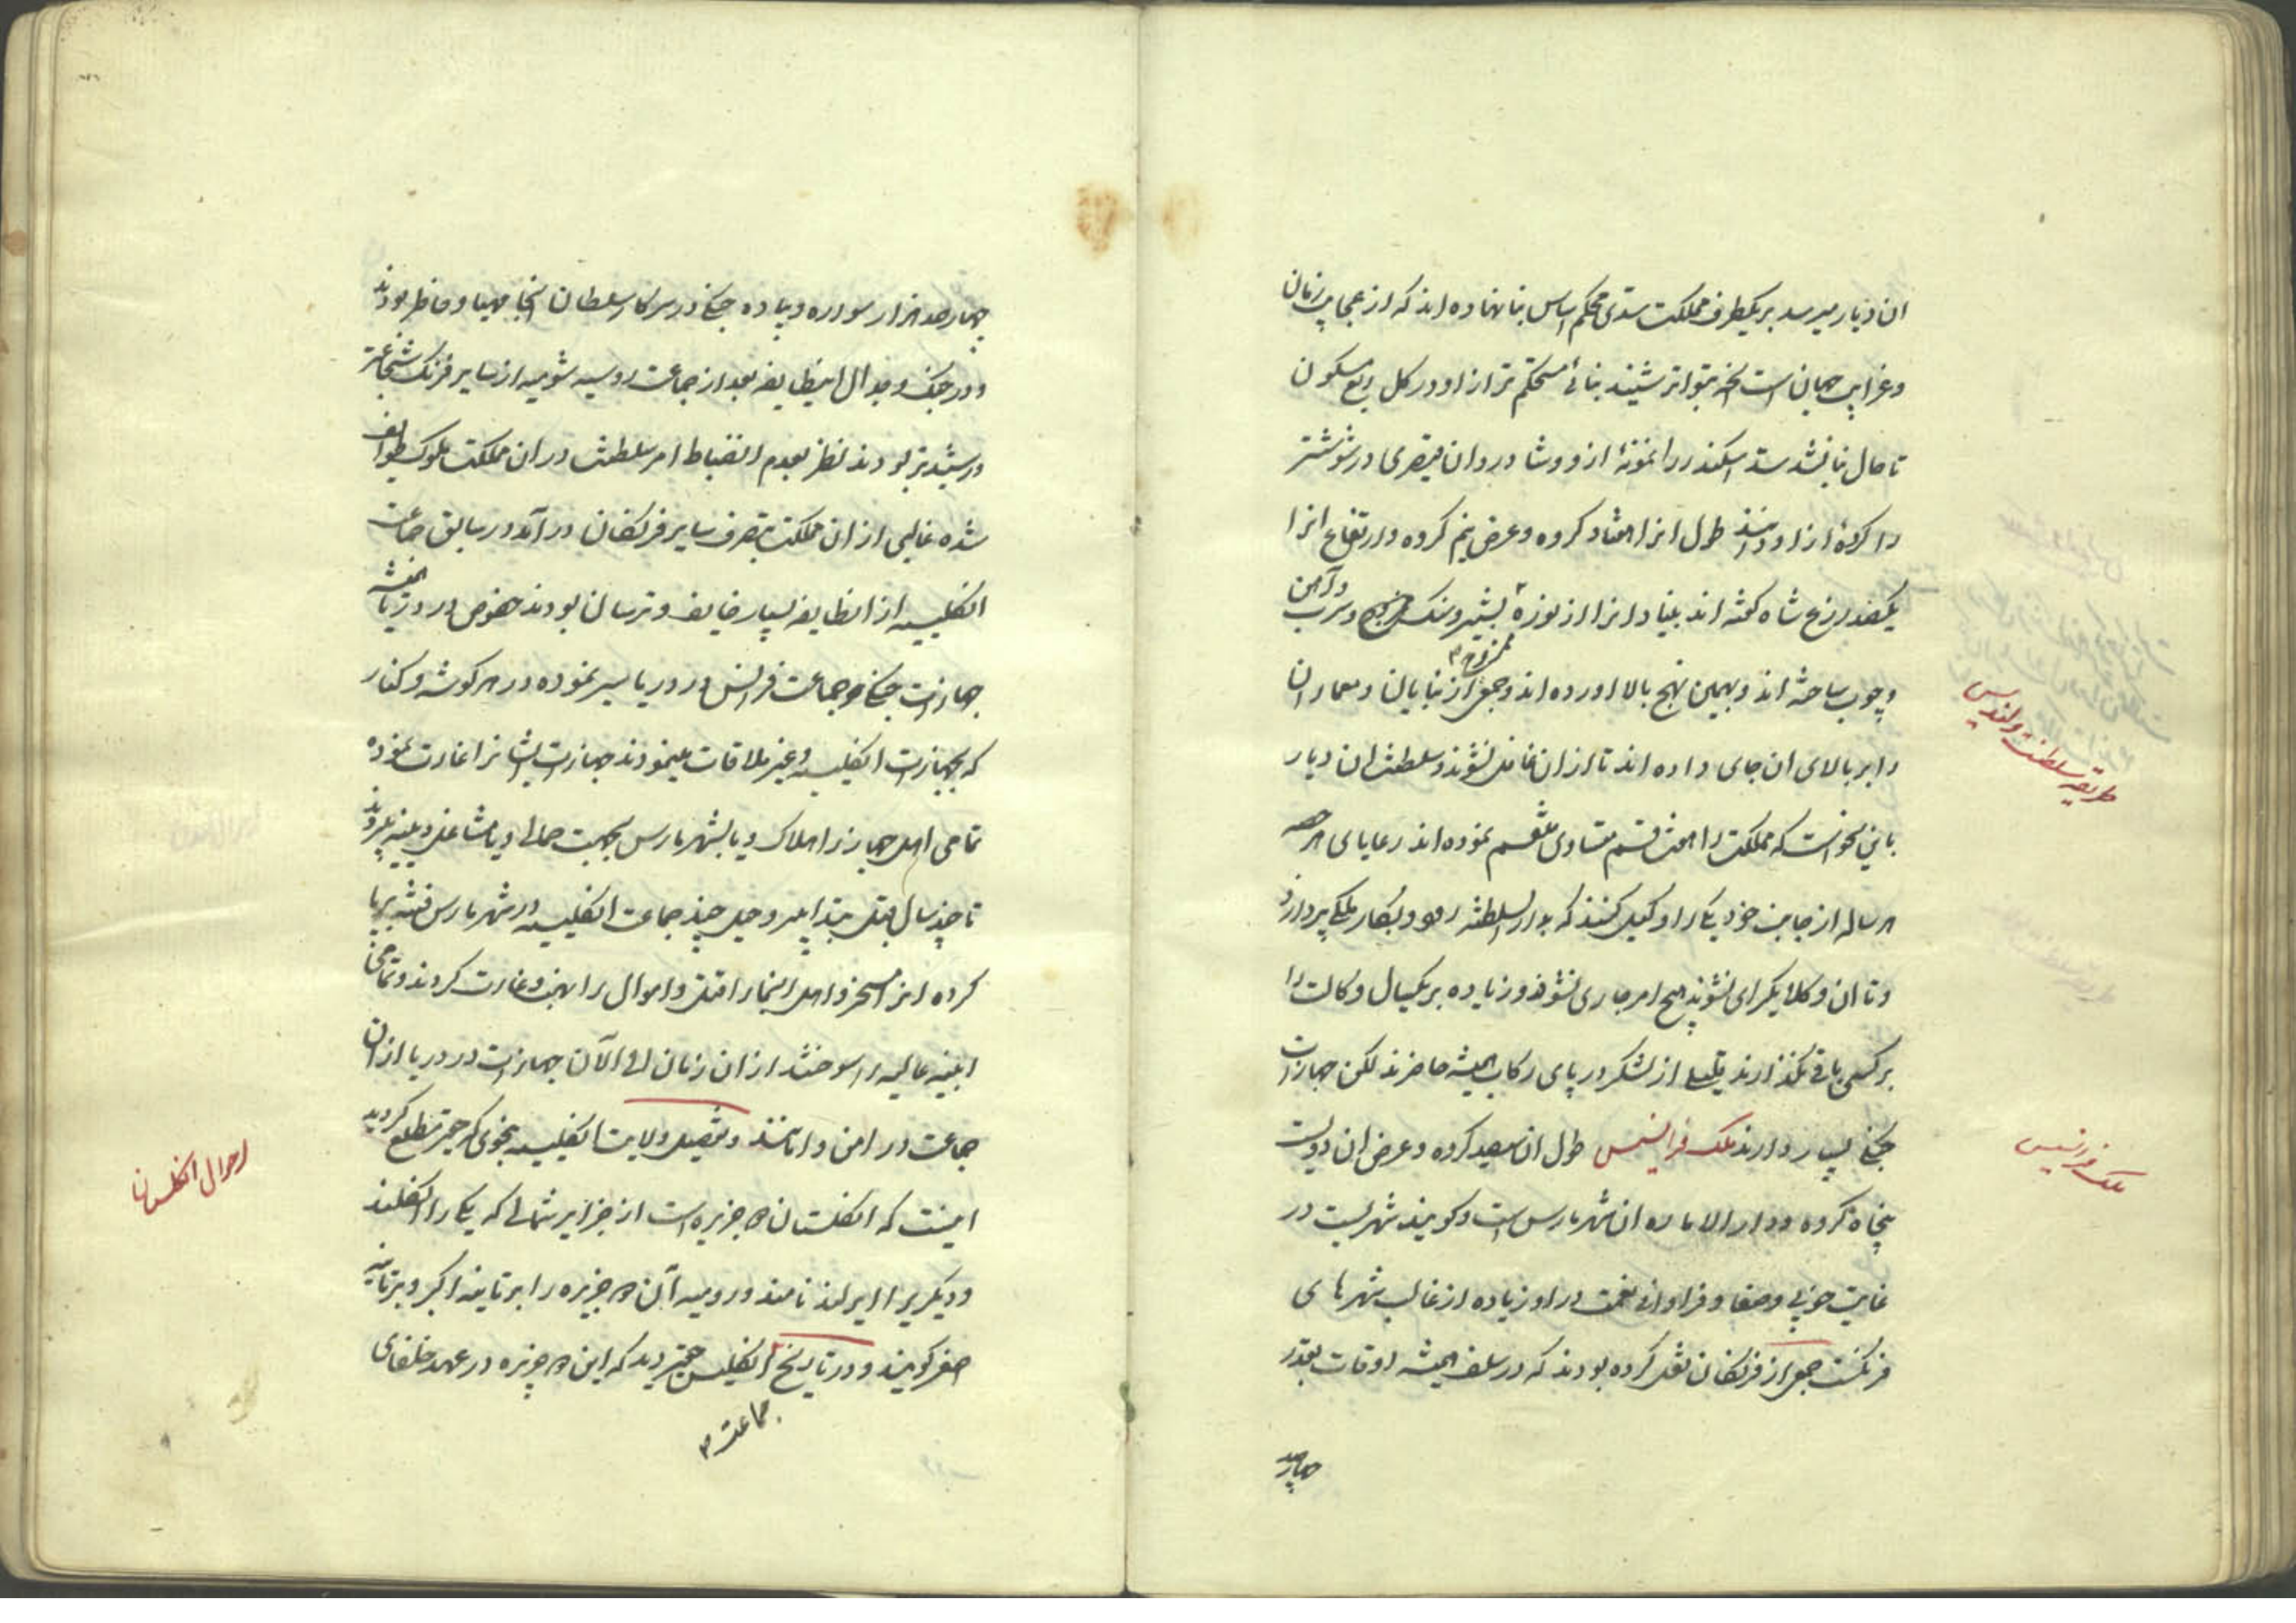 ان دیار میرسد بر یکطرف مملکت سدی محکم اساس بنا نهاده اند که از عجایب زمان
و غرایب جهان است آنچه بتواتر شنیدند بنائی مستحکم تر ازاو در کل ربع مسکون
تا حال بنا نشد سد اسکندر را نمونهٔ ازو و شادروان قیصری در شوشتر
را کردهٔ ازاو دانند طول انرا هفتاد کروه و عرض نیم کروه و ارتفاع انرا
یکصد ذرع شاه گفته اند بنیاد انرا از نوره و سنک و سرب و آهن
ممزوج
و چوب ساخته اند و بهمین نهج بالا اورده اند و جمعی از بنایان و معماران
را بر بالای ان جای داده اند تا ازان غافل نشوند و سلطنت ان دیار
باین نحو است که مملکت را هفت قسم متساوی منقسم نموده اند رعایای هر حصه
هر ساله از جانب خود یکی را وکیل کنند که بدار السلطنه رود و بکار ملکی پردازد
و تا ان وکلا یکرای نشوند هیچ امر جاری نشود و زیاده بر یکسال وکالت را
بر کسی باقی نگذارند قلیلی از لشکر در پای رکاب همیشه حاضرند لکن جهازات
جنکی بسیار دارند ملک فرانسیس طول ان سیصد کروه و عرض ان دویست
پنجاه کروه و دار الاماره ان شهر پارس است و گویند شهریست در
غایت خوبی و صفا و فراوانی نعمت در او زیاده از غالب شهرهای
فرنکست جمعی از فرنکان نقل کرده بودند که در سلف همیشه اوقات بقدر
چهارصد
طریقه سلطنت ولندیس
ملک فرانسیس
چهارصد هزار سواره و پیاده جنکی در سرکار سلطان انجا مهیا و حاضر بودند
و در جنک و جدال اینطایفه بعد از جماعت روسیه شومیه از سایر فرنک شجاعتر
و رشیدتر بودند نظر بعدم انضباط امر سلطنت در ان مملکت ملوک طوایف
شده غالبی از ان مملکت بتصرف سایر فرنکان در آمد در سابق جماعت
انکلیسیه از انطایفه بسیار خایف و ترسان بودند خصوص در دریا همیشه
جهازات جنکی جماعت فرانس در دریا سیر نموده در هر گوشه و کنار
که بجهازات انکلیسیه و غیر ملاقات مینمودند جهازات ایشانرا غارت نموده
تمامی اهل جهاز را هلاک و یا بشهر پارس بجهت حمالی و یا مشاغل دنیه میبردند
تا چند سال قبل بتدابیر و حیل چند جماعت انکلیسیه در شهر پارس فتنه برپا
کرده انرا مسخر و اهل انجا را قتل و اموال را نهب و غارت کردند و تمامی
ابنیه عالیه را سوختند از ان زمان الی الآن جهازات در دریا از ان
جماعت در امن و امانند و تفصیل ولایت انکلیسیه بنحوی که حقیر مطلع کردید
اینست که انکلستان دو جزیره است از جزایر شمالی که یکی را انکلند
و دیگریرا ایرلند نامند و رومیه آن دو جزیره را برتانیه اکبر و برتانیه
اصغر گویند و در تاریخ انکلیس حقیر دید که این دو جزیره در عهد خلفای
جماعت
احوال انکلستان